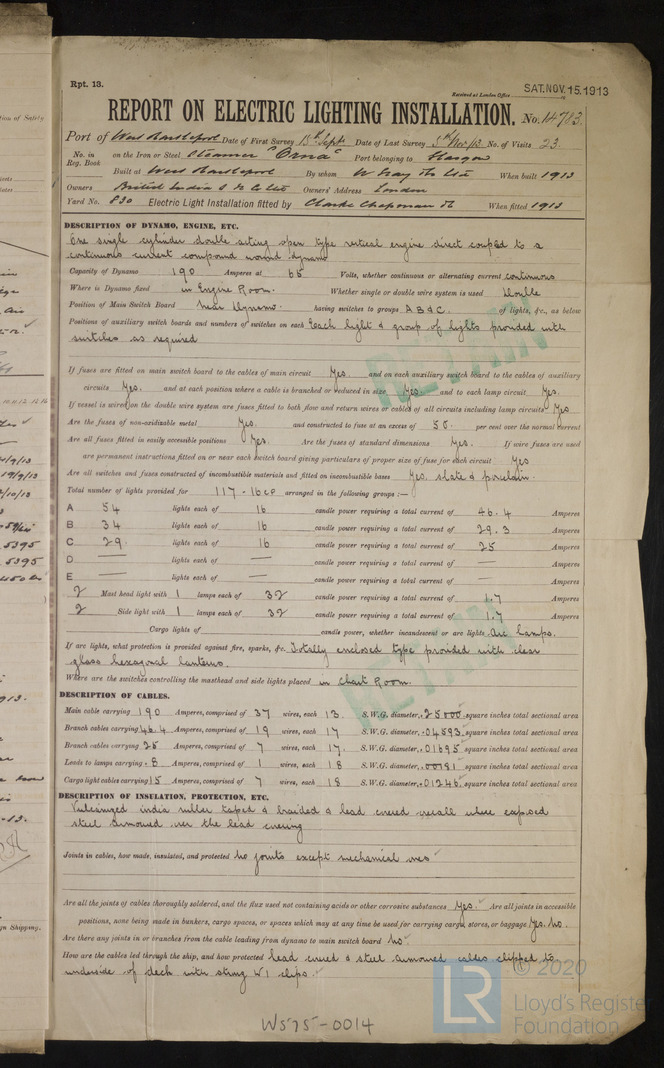 Rpt. 13.
Received at London Office
SAT. NOV. 15. 1913
REPORT ON ELECTRIC LIGHTING INSTALLATION. No. 14713.
Port of West Hartlepool Date of First Survey 15th Sept Date of Last Survey 5th Nov 13 No. of Visits 23.
No. in Reg. Book on the Iron or Steel Steamer "Orna" Port belonging to Glasgow
Built at West Hartlepool By whom W Gray & Co Ltd When built 1913
Owners British India S. N. Co Ltd Owners' Address London
Yard No. 830 Electric Light Installation fitted by Clarke Chapman & Co When fitted 1913
DESCRIPTION OF DYNAMO, ENGINE, ETC.
One single cylinder double acting open type vertical engine direct coupled to a
continuous current compound wound dynamo
Capacity of Dynamo 190 Amperes at 65 Volts, whether continuous or alternating current continuous
Where is Dynamo fixed in Engine Room. Whether single or double wire system is used Double
Position of Main Switch Board near Dynamo. having switches to groups A B & C. of lights, &c., as below
Positions of auxiliary switch boards and numbers of switches on each Each light & group of lights provided with
switches as required
If fuses are fitted on main switch board to the cables of main circuit Yes. and on each auxiliary switch board to the cables of auxiliary
circuits Yes. and at each position where a cable is branched or reduced in size Yes. and to each lamp circuit Yes.
If vessel is wired on the double wire system are fuses fitted to both flow and return wires or cables of all circuits including lamp circuits Yes.
Are the fuses of non-oxidizable metal Yes. and constructed to fuse at an excess of 50. per cent over the normal current
Are all fuses fitted in easily accessible positions Yes. Are the fuses of standard dimensions Yes. If wire fuses are used
are permanent instructions fitted on or near each switch board giving particulars of proper size of fuse for each circuit Yes
Are all switches and fuses constructed of incombustible materials and fitted on incombustible bases Yes. slate & porcelain.
Total number of lights provided for 117 - 16 cp arranged in the following groups :—
A 54 lights each of 16 candle power requiring a total current of 46.4 Amperes
B 34 lights each of 16 candle power requiring a total current of 29.3 Amperes
C 29. lights each of 16 candle power requiring a total current of 25 Amperes
D — lights each of — candle power requiring a total current of — Amperes
E — lights each of — candle power requiring a total current of — Amperes
2 Mast head light with 1 lamps each of 32 candle power requiring a total current of 1.7 Amperes
2 Side light with 1 lamps each of 32 candle power requiring a total current of 1.7 Amperes
Cargo lights of candle power, whether incandescent or arc lights arc lamps.
If arc lights, what protection is provided against fire, sparks, &c. Totally enclosed type provided with clear
glass hexagonal lanterns.
Where are the switches controlling the masthead and side lights placed in Chart Room.
DESCRIPTION OF CABLES.
Main cable carrying 190 Amperes, comprised of 37 wires, each 13. S.W.G. diameter, .25000 square inches total sectional area
Branch cables carrying 46.4 Amperes, comprised of 19 wires, each 17 S.W.G. diameter, .04593 square inches total sectional area
Branch cables carrying 25 Amperes, comprised of 7 wires, each 17. S.W.G. diameter, .01695 square inches total sectional area
Leads to lamps carrying .8 Amperes, comprised of 1 wires, each 18 S.W.G. diameter, .00181 square inches total sectional area
Cargo light cables carrying 15 Amperes, comprised of 7 wires, each 18 S.W.G. diameter, .01246 square inches total sectional area
DESCRIPTION OF INSULATION, PROTECTION, ETC.
Vulcanized india rubber taped & braided & lead covered overall where exposed
steel armoured over the lead covering
Joints in cables, how made, insulated, and protected No joints except mechanical ones
Are all the joints of cables thoroughly soldered, and the flux used not containing acids or other corrosive substances Yes. Are all joints in accessible
positions, none being made in bunkers, cargo spaces, or spaces which may at any time be used for carrying cargo, stores, or baggage Yes. No.
Are there any joints in or branches from the cable leading from dynamo to main switch board No
How are the cables led through the ship, and how protected lead covered & steel armoured cables clipped to
underside of deck with strong W I clips.
RETAIN
RETAIN
W575-0014
LR
© 2020
Lloyd's Register
Foundation